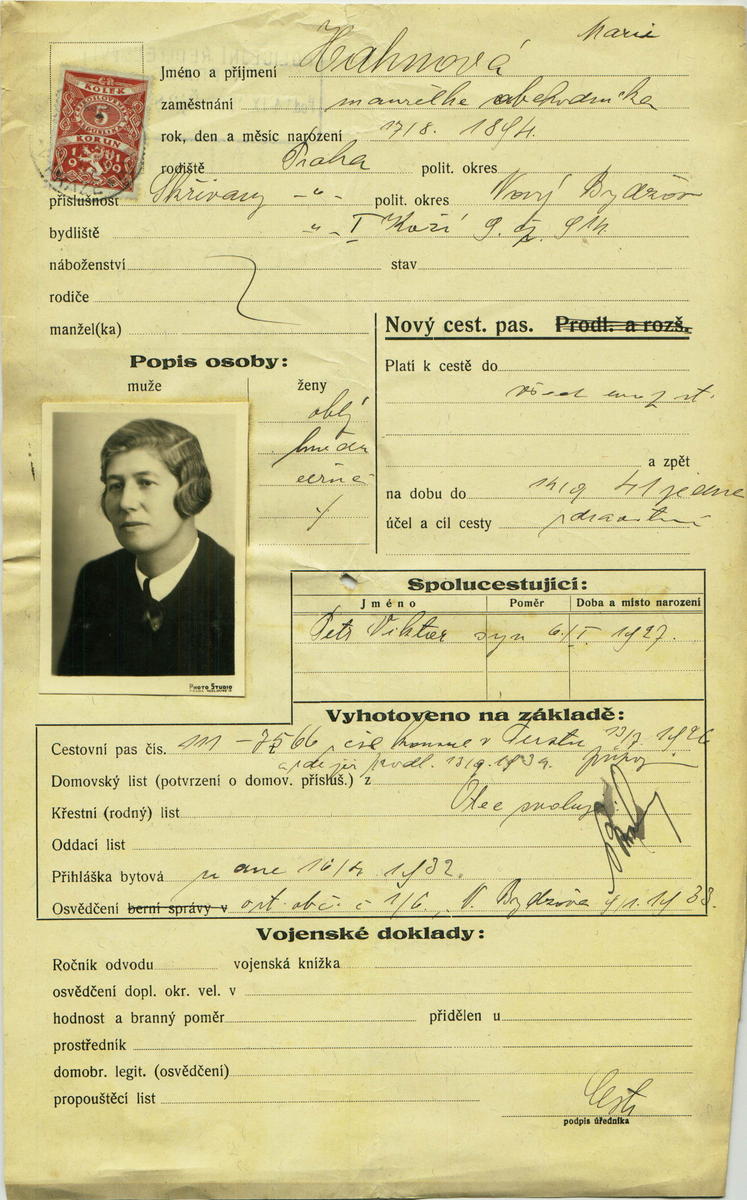 Marie
Jméno a příjmení Hahnová
zaměstnání manželka obchodníka
rok, den a měsíc narození 17/8. 1894.
rodiště Praha polit. okres
příslušnost Skřivany -„- polit. okres Nový Bydžov
bydliště -„- I Kozí 9. čj. 914.
náboženství stav
rodiče
manžel(ka)
ČR
KOLEK
5
KORUN
1919
Nový cest. pas. Prodl. a rozš.
Popis osoby:
muže ženy
Platí k cestě do
všech st.
oblý
hnědé
černé
a zpět
na dobu do 14/9 41
účel a cíl cesty zdravotní
Spolucestující:
Jméno Poměr Doba a místo narození
Petr Viktor syn 6/I 1927.
PHOTO STUDIO
Vyhotoveno na základě:
Cestovní pas čís. 111 - v Terstu 13/7 1926
prodl. 13/9. 1939.
Domovský list (potvrzení o domov. přísluš.) z
Křestní (rodný) list Otec svoluje
Oddací list
Přihláška bytová ze dne 16/4 1932.
Osvědčení berní správy v č 1/6, N. Bydžova 4/1. 1938.
Vojenské doklady:
Ročník odvodu vojenská knížka
osvědčení dopl. okr. vel. v
hodnost a branný poměr přidělen u
prostředník
domobr. legit. (osvědčení)
propouštěcí list
podpis úředníka